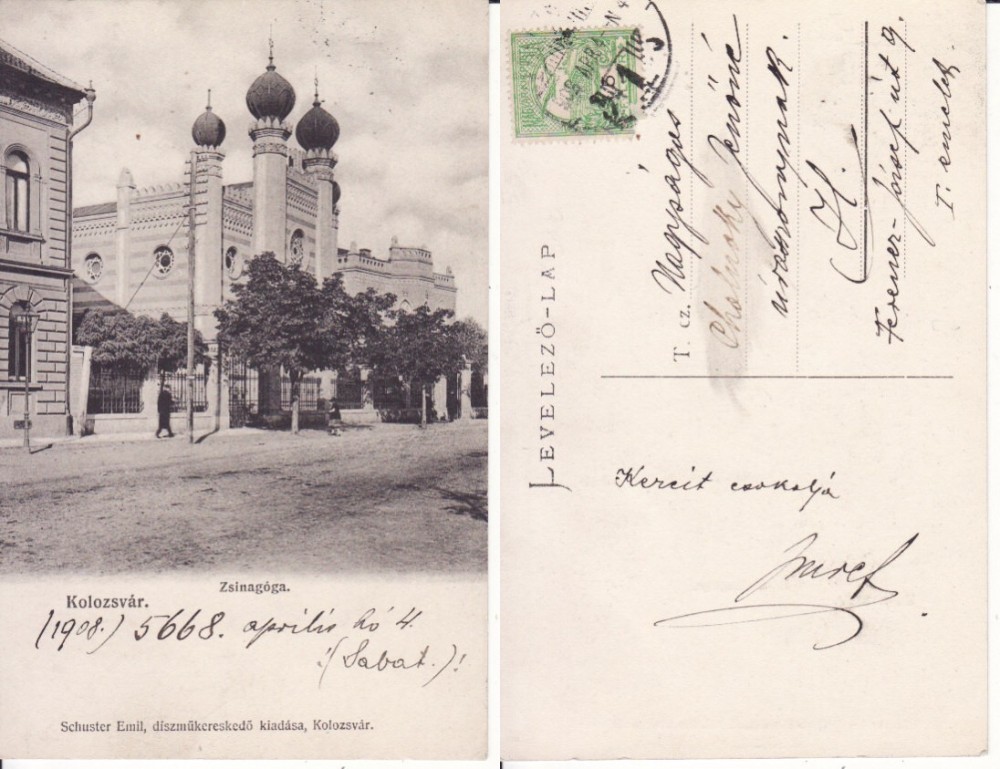 Zsinagóga.
Kolozsvár.
(1908.) 5668. április hó 4.
!(Sabat.)!
Schuster Emil, diszműkereskedő kiadása, Kolozsvár.
LEVELEZŐ-LAP
T. cz. Nagyságos
Cholnoky Jenőné
úrasszonynak.
H.
Ferencz-József út 9.
I. emelet
Kezeit csokolja
Imre